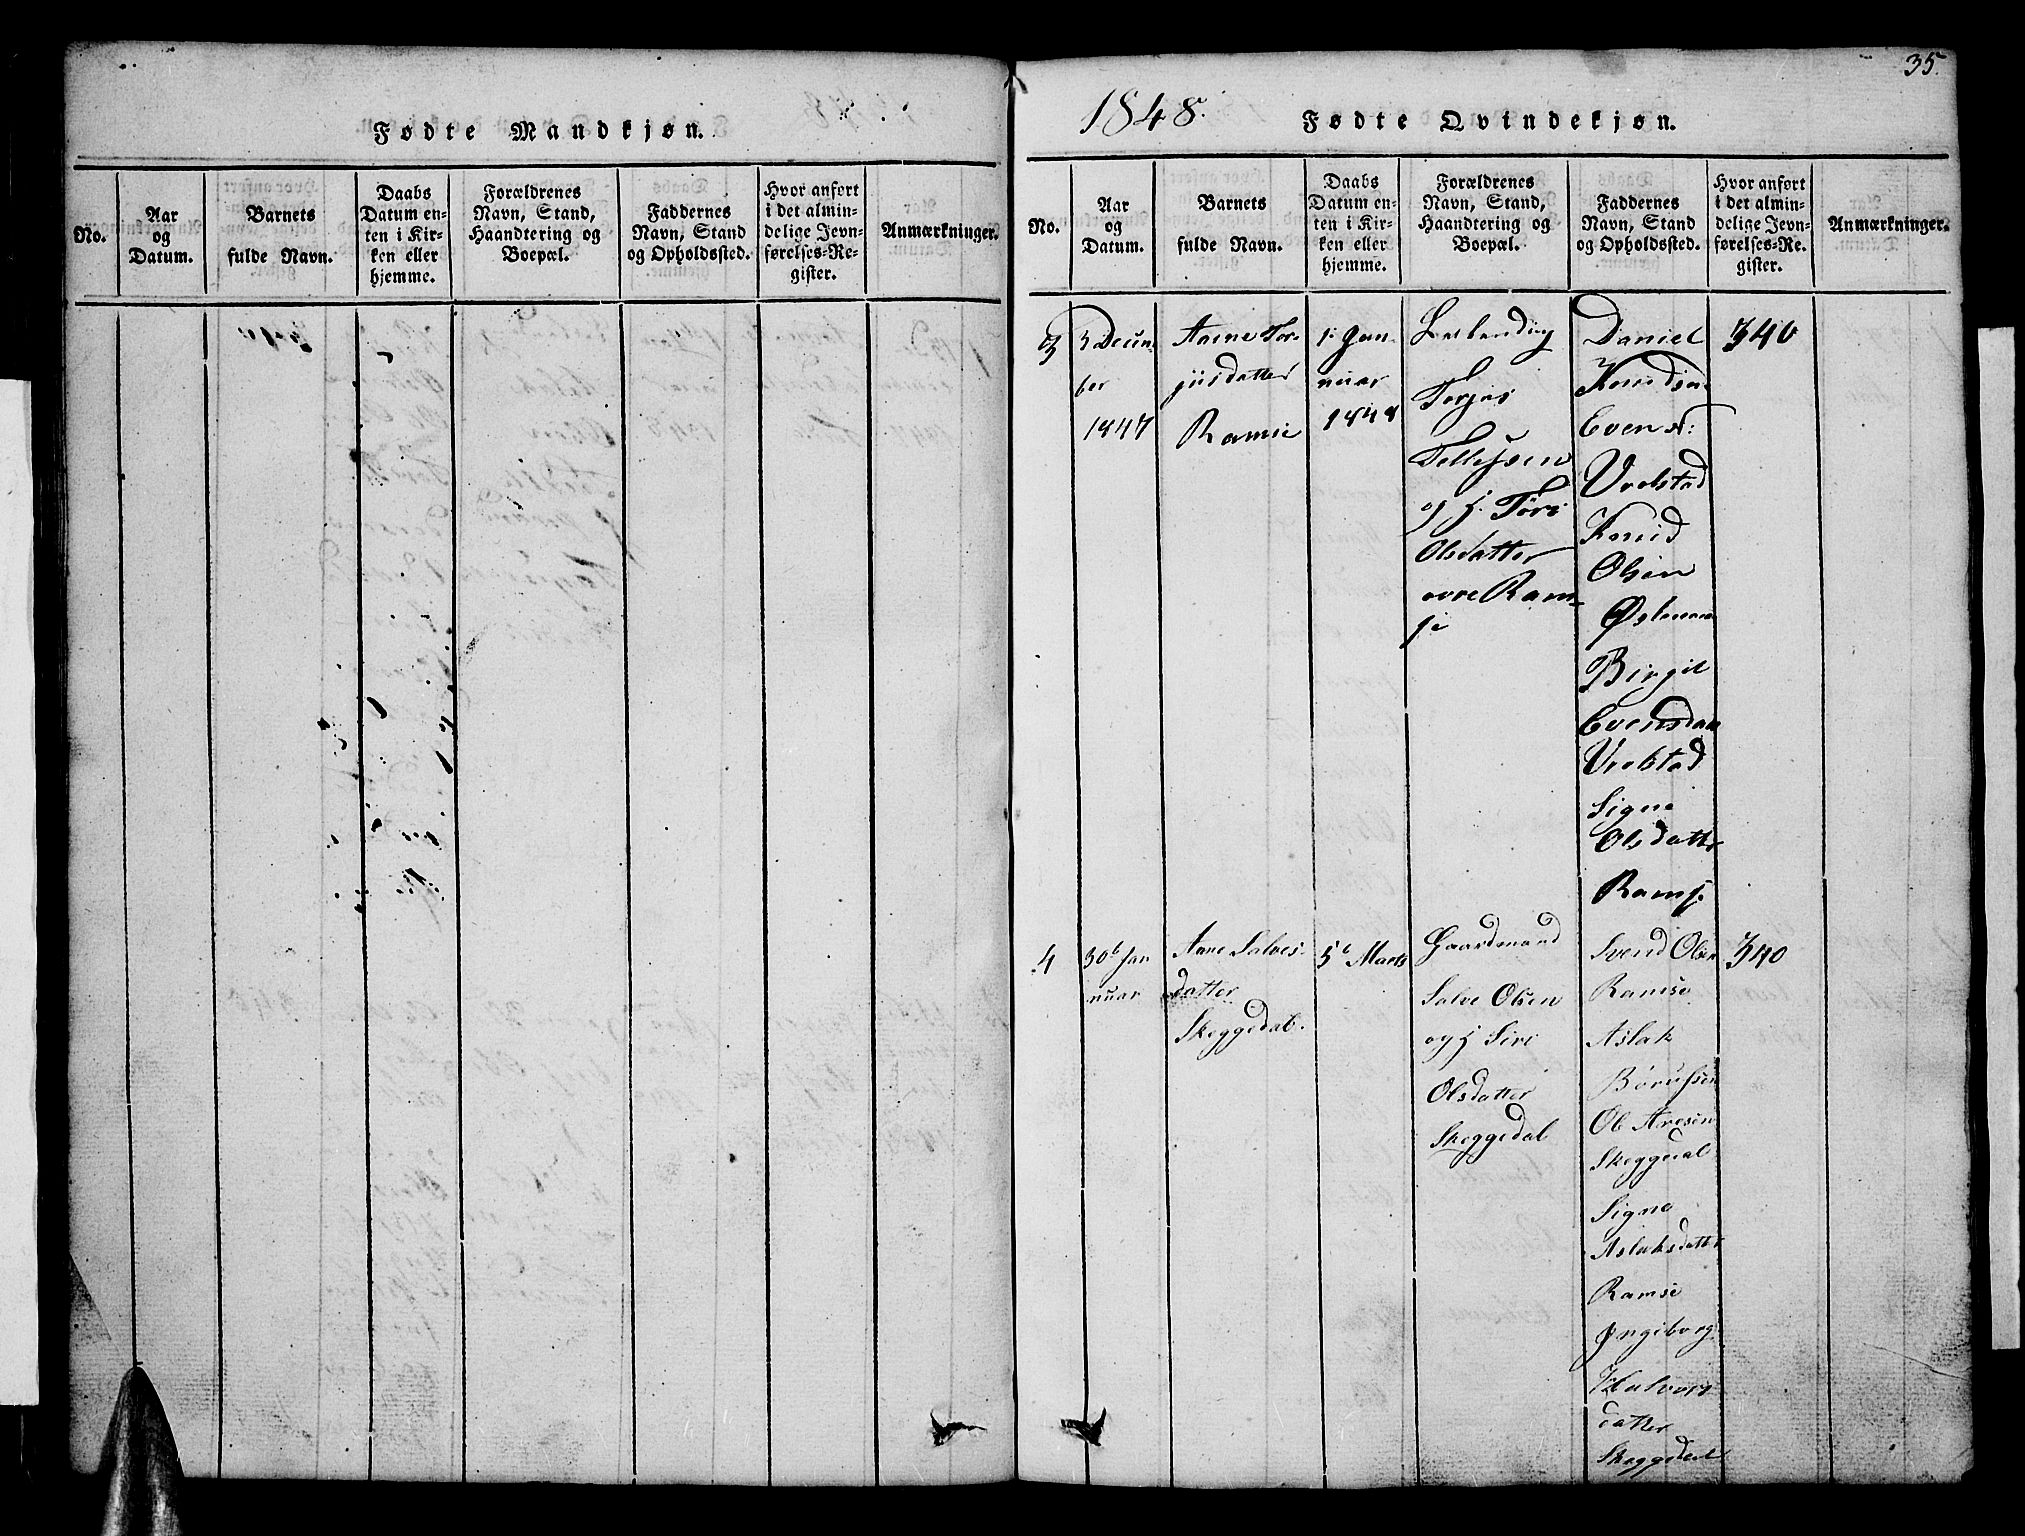 Fødte Mandkjøn.
No.
Aar
og
Datum.
Barnets
fulde Navn.
Daabs
Datum en-
ten i Kir-
ken eller
hjemme.
Forældrenes
Navn, Stand,
Haandtering og
Boepæl.
Faddernes
Navn, Stand
og Opholdssted.
Hvor anført
i det almin-
delige Jevn-
førelses-Re-
gister.
Anmærkninger.
35.
1848.
Fødte Qvindekjøn.
No.
Aar
og
Datum.
Barnets
fulde Navn.
Daabs
Datum en-
ten i Kir-
ken eller
hjemme.
Forældrenes
Navn, Stand,
Haandtering og
Boepæl.
Faddernes
Navn, Stand
og Opholdssted.
Hvor anført
i det almin-
delige Jevn-
førelses-Re-
gister.
Anmærkninger.
3
3 Decem-
ber
1847
Anne Tor-
jusdatter
Ramse
1. Jan-
nuar
1848
Torjus
Tellefsen
og H. Torè
Olsdatter
øvre Ram-
se
Daniel
Knudsen
Evens:
Vrelstad
Knud
Olsen
Birgit
Evensdatt
Vrelstad
Signe
Olsdatter
Rams.
340
4
30te Jan
nuar
Anne Salves-
datter
Skeggedal.
5te Marts
Gaardmand
Salve Olsen
og H Siri
Olsdatter
Skeggedal
Svend Olsen
Ramse
Aslak
Børufsen
Ol Aresen
Skeggedal
Signe
Aslaksdatter
Ramse
Ingeborg
Halvors
datter
Skeggedal
340